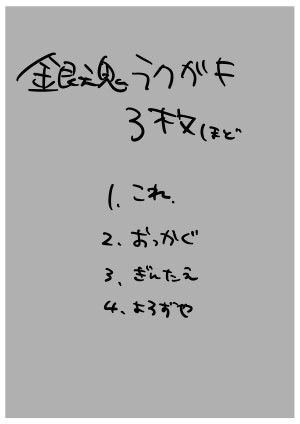 銀魂らくがき
3枚ほど
1. これ.
2. おっかぐ
3. ぎんたえ
4. よろずや